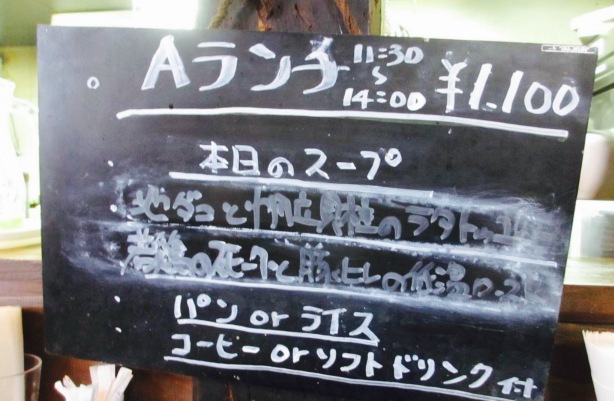 Aランチ 11:30~14:00 ¥1,100
本日のスープ
地ダコと帆立貝柱のラタトゥ
若鶏のスモークと豚ヒレの低温ロースト
パン or ライス
コーヒー or ソフトドリンク付